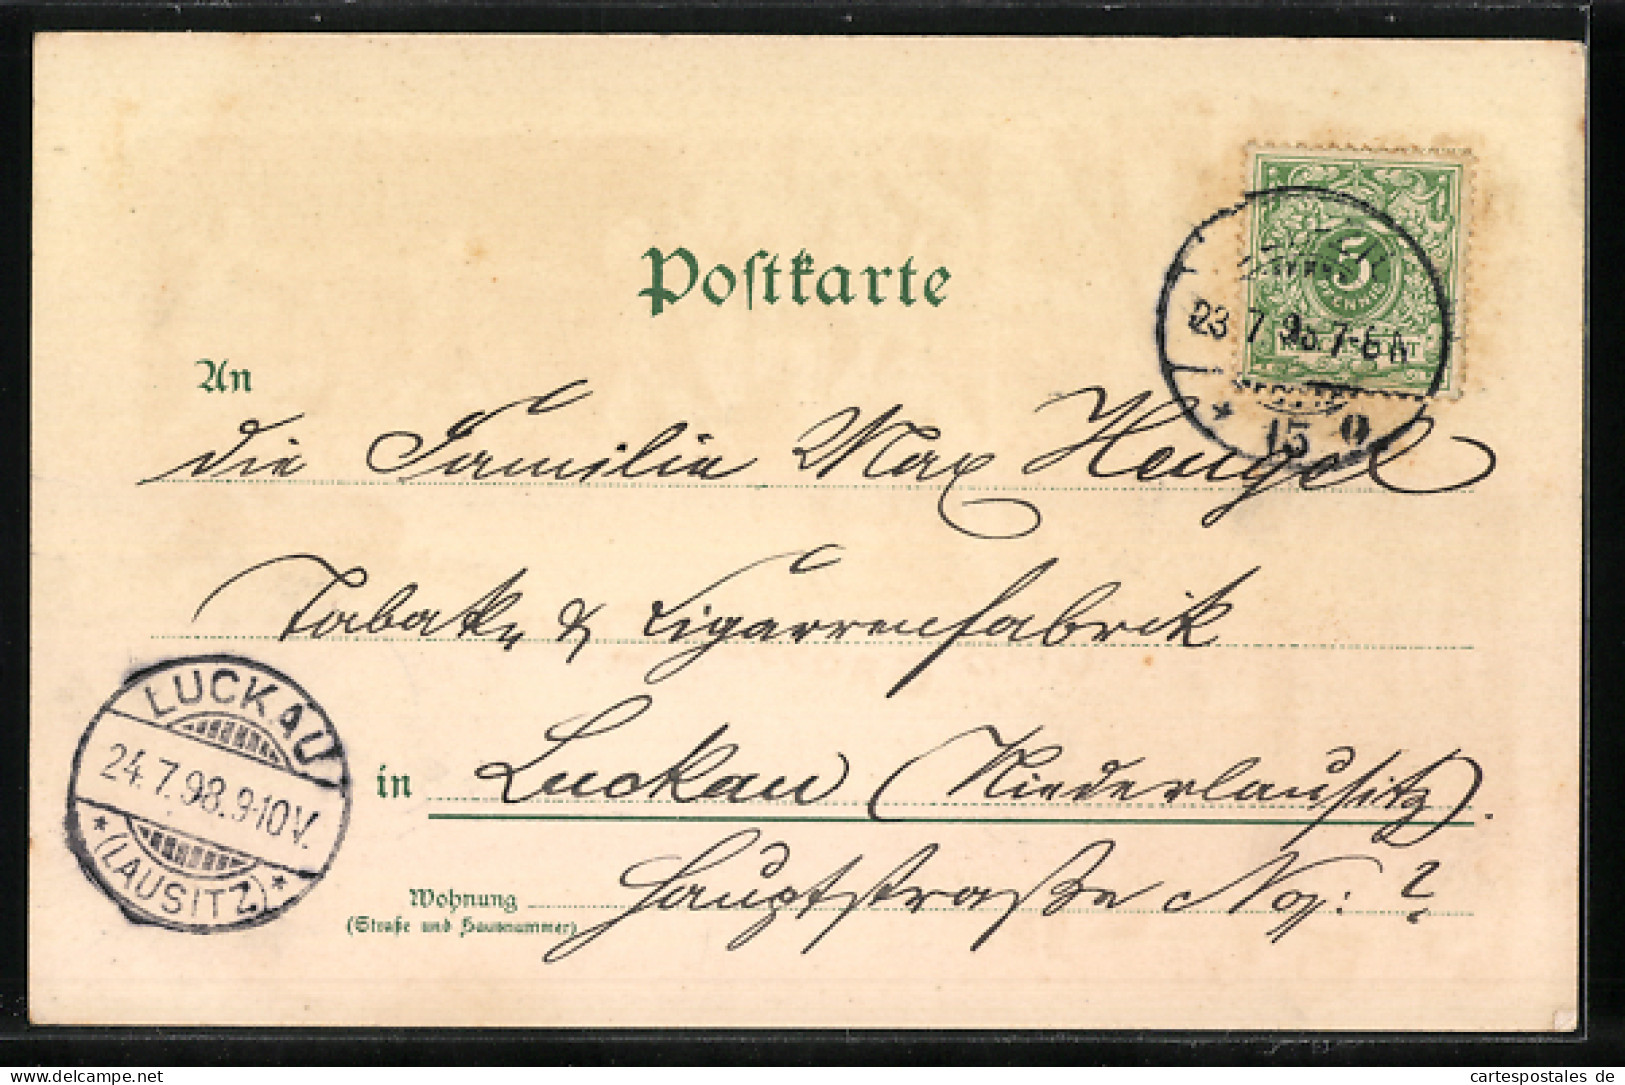 Postkarte
5
PFENNIG
23 7 98. 7-8 N
15
An
die Familie Max Hengel
Tabak- & Zigarrenfabrik
in Luckau (Niederlausitz).
Wohnung Hauptstraße No: ?
(Straße und Hausnummer)
LUCKAU
24.7.98.9-10V.
* (LAUSITZ) *
oldthing.de
cartespostales de